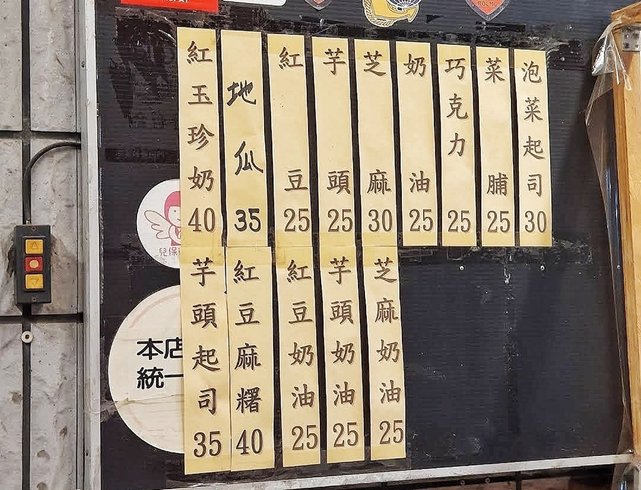 紅玉珍奶40
地瓜35
紅豆25
芋頭25
芝麻30
奶油25
巧克力25
菜脯25
泡菜起司30
芋頭起司35
紅豆麻糬40
紅豆奶油25
芋頭奶油25
芝麻奶油25
兒保
本店
統一